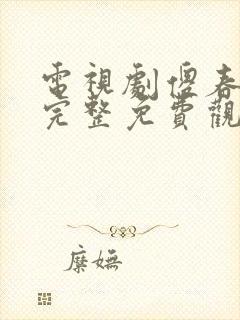 電視劇傻春
完整免費觀
糜嫵